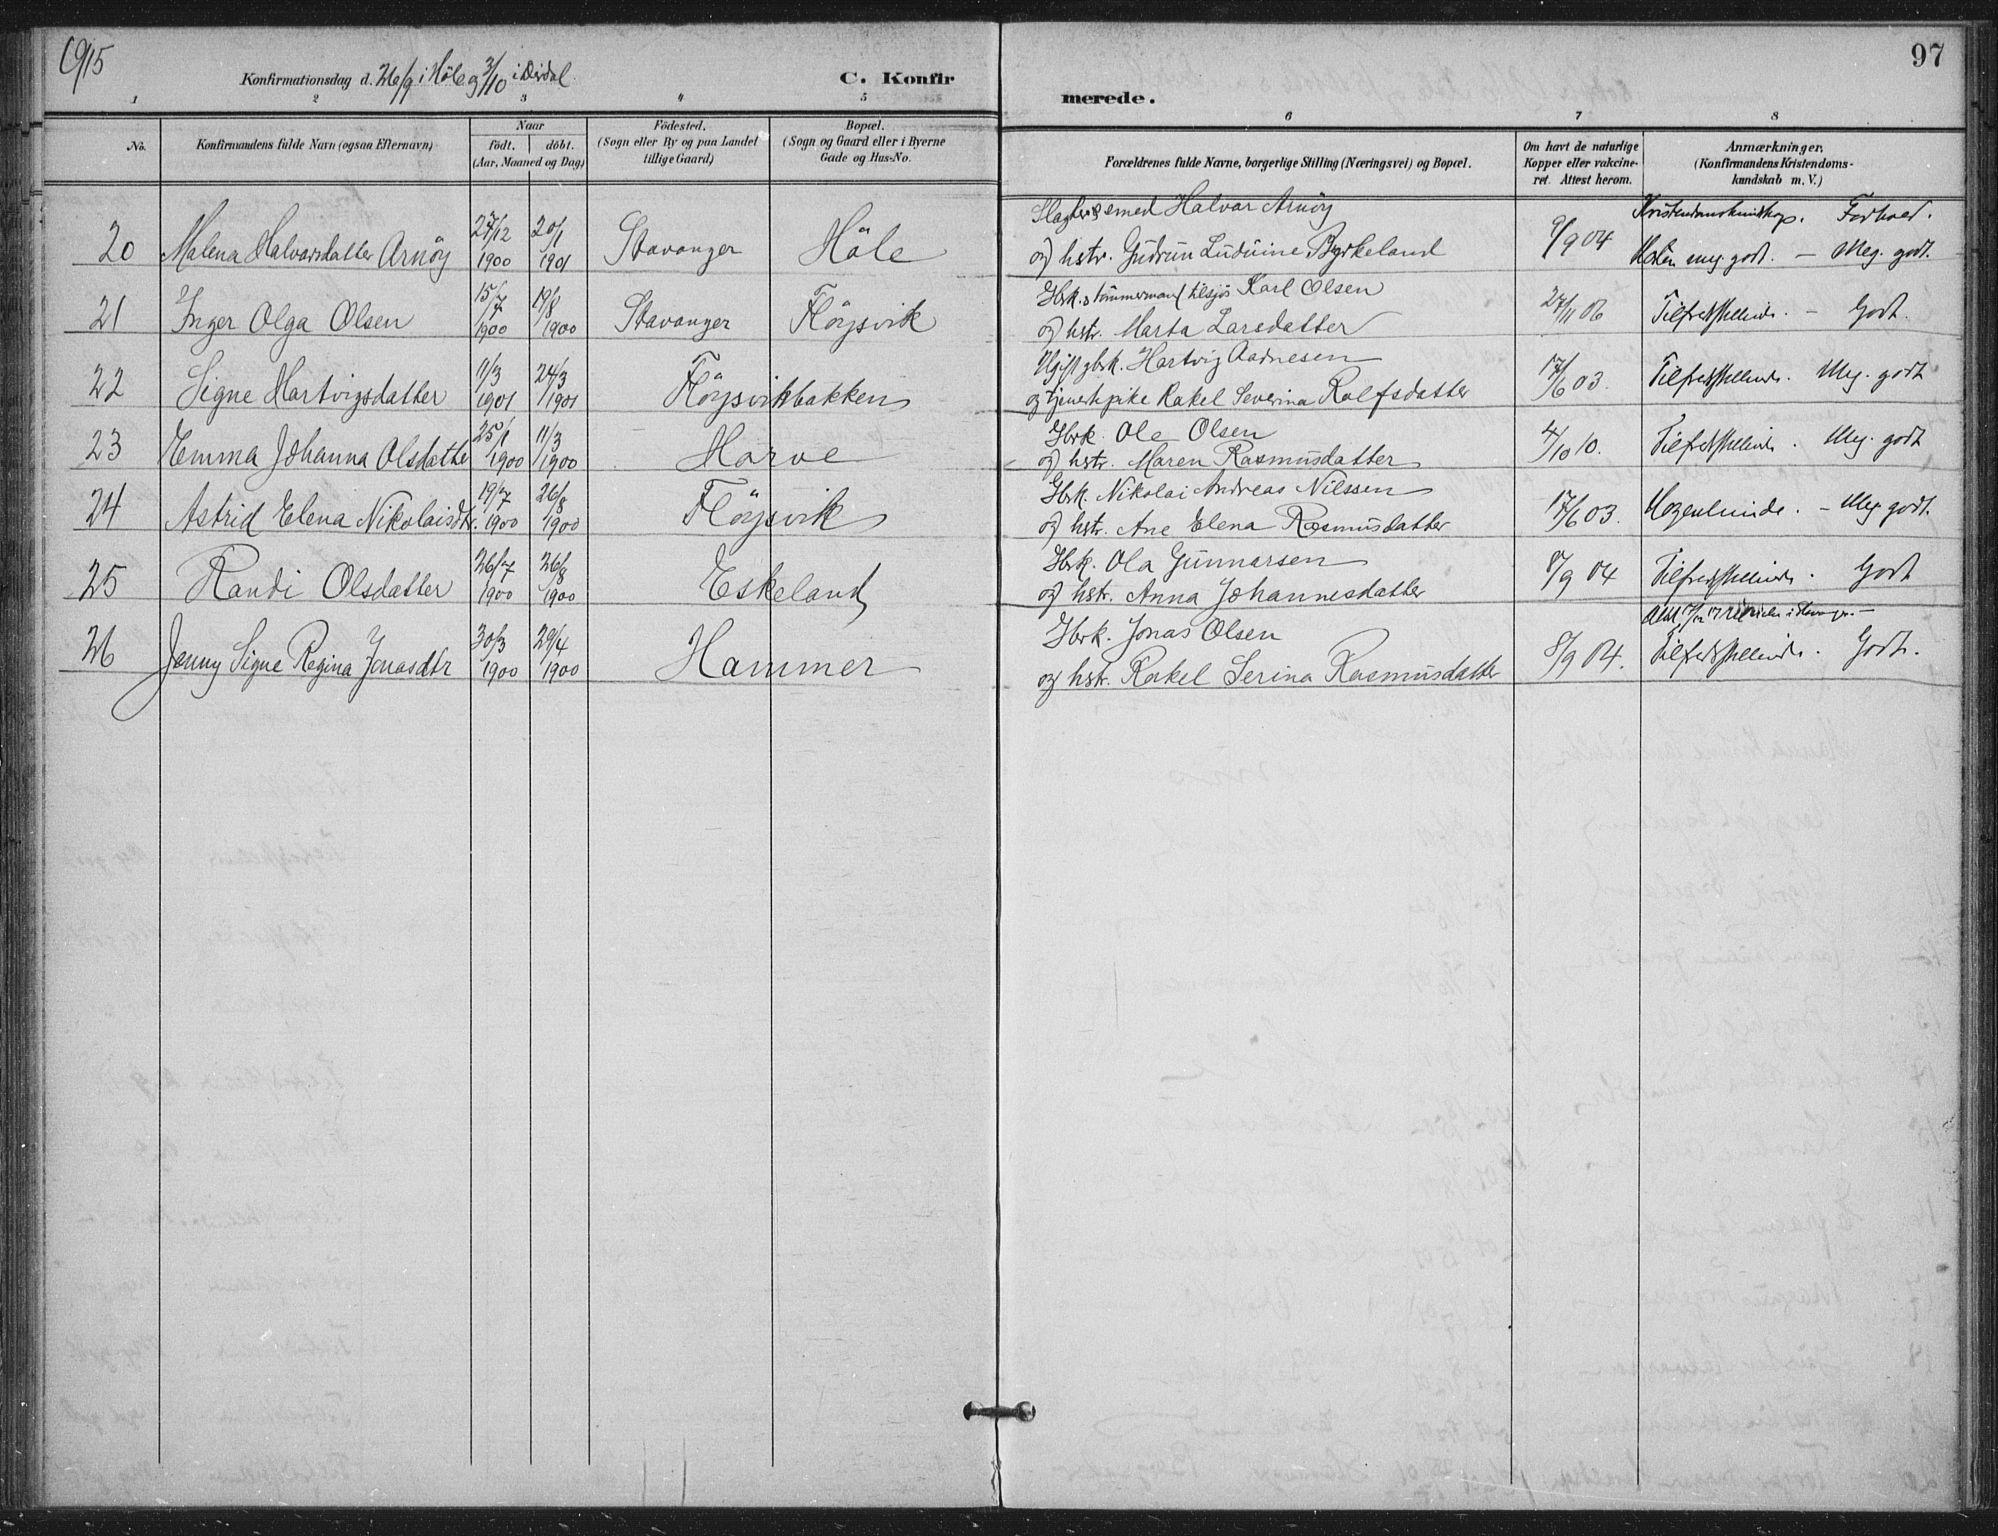 1915
97
Konfirmationsdag d. 26/9 i Höle og 3/10 i Dirdal
C. Konfir
merede.
1 2 3 " 5 6 7 8
No.
Konfirmandens fulde Navn (ogsaa Efternavn)
Naar
födt. döbt.
(Aar, Maaned og Dag)
Födested.
(Sogn eller By og paa Landet
tillige Gaard)
Bopæl.
(Sogn og Gaard eller i Byerne
Gade og Hus-No.
Forældrenes fulde Navne, borgerlige Stilling (Næringsvei) og Bopæl.
Om havt de naturlige
Kopper eller vakcine-
ret. Attest herom.
Anmærkninger.
(Konfirmandens Kristendoms-
kundskab m. V.)
Kristendomskundskap. Forhold.
20 Malena Halvarsdatter Arnöy 27/12 1900 20/1 1901 Stavanger Höle
Halvar Arnöy
og hstr. Gudrun Luduine Byrkeland 9/9 04 meg. godt. — Meg. godt.
21 Inger Olga Olsen 15/7 1900 19/8 1900 Stavanger Flöysvik
Gbrk. tömmermand tilsjös Karl Olsen
og hstr. Marta Larsdatter 27/11 06 Tilfredsstillende. — Godt.
22 Signe Hartvigsdatter 11/3 1901 24/3 1901 Flöysvikbakken
Ugift gbrk. Hartvig Aadnesen
og tjenestepike Rakel Severina Rolfsdatter 17/6 03. Tilfredsstillende. Meg. godt
23 Emma Johanna Olsdatter 25/1 1900 11/3 1900 Marve
Gbrk. Ole Olsen
og hstr. Maren Rasmusdatter 4/10 10. Tilfredsstillende. Meg. godt
24 Astrid Elena Nikolaisdtr. 19/7 1900 26/8 1900 Flöysvik
Gbrk. Nikolai Andreas Nilssen
og hstr. Ane Elena Rasmusdatter 17/6 03. — Meg godt.
25 Randi Olsdatter 26/7 1900 26/8 1900 Eskeland
Gbrk. Ola Gunnarsen
og hstr. Anna Johannesdatter 8/9 04 Tilfredsstillende. Godt
26 Jenny Signe Regina Jonasdtr 30/3 1900 29/4 1900 Hammer
Gbrk. Jonas Olsen
og hstr. Rakel Serina Rasmusdatter 8/9 04. Tilfredsstillende. Godt.